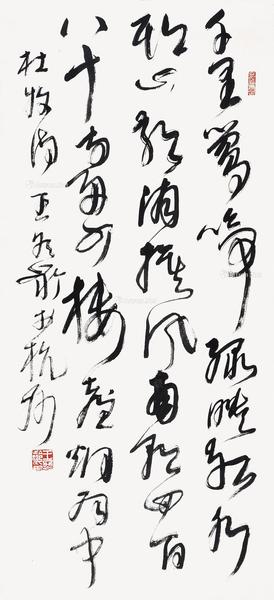 千里鶯啼綠映紅水
村山郭酒旗風南朝四百
八十寺多少樓臺烟雨中
杜牧詩王冬齡书杭州